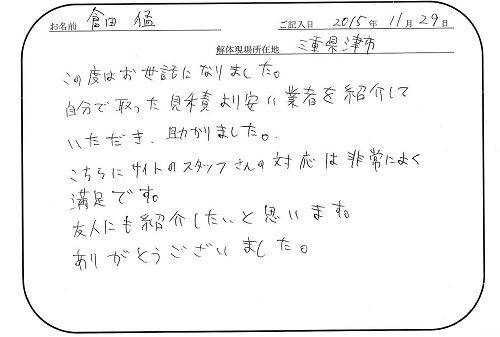 お名前 倉田 猛 ご記入日 2015年 11月 29日
解体現場所在地 三重県津市
この度はお世話になりました。
自分で取った見積より安い業者を紹介して
いただき、助かりました。
こちらにサイトのスタッフさんの対応は非常によく
満足です。
友人にも紹介したいと思います。
ありがとうございました。